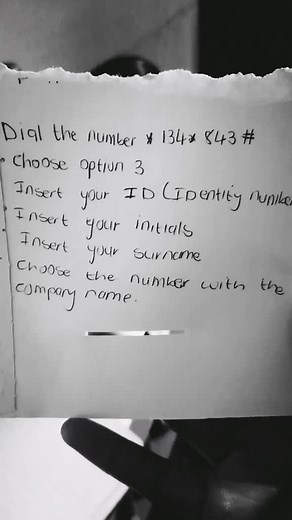 Dial the number * 134* 843 #
• Choose option 3
Insert your ID (Identity number
• Insert your initials
Insert your surname
Choose the number with the
company name.